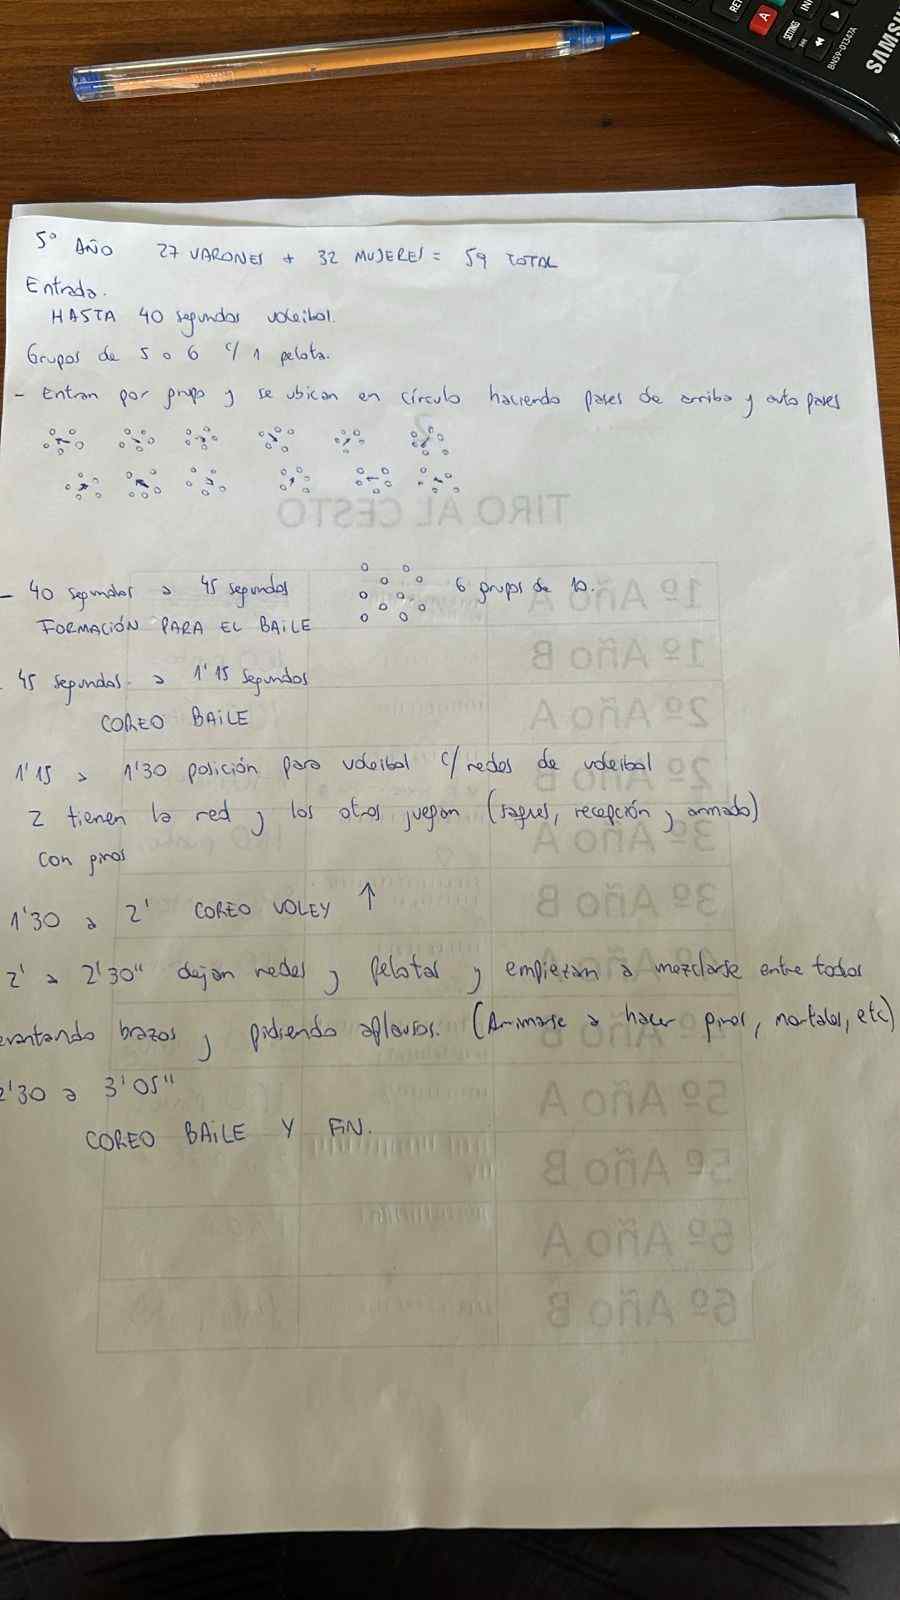 RET
A
SETTING
SAMS
BN59-01347A
5° AÑO 27 VARONES + 32 MUJERES = 59 TOTAL
Entrada.
HASTA 40 segundos voleibol.
Grupos de 5 o 6 c/ 1 pelota.
- Entran por grupo y se ubican en círculo haciendo pases de arriba y auto pases
TIRO AL CESTO
- 40 segundos a 45 segundos 6 grupos de 10.
FORMACIÓN PARA EL BAILE
- 45 segundos a 1'15 segundos
COREO BAILE
1'15 a 1'30 posición para voleibol c/ redes de voleibol
2 tienen la red y los otros juegan (saques, recepción y armado)
con giros
1'30 a 2' COREO VOLEY ↑
2' a 2'30" dejan redes y pelotas y empiezan a mezclarse entre todos
levantando brazos y pidiendo aplausos. (Animarse a hacer giros, mortales, etc)
2'30 a 3'05"
COREO BAILE Y FIN.
1º Año A
1º Año B
2º Año A
2º Año B
3º Año A
3º Año B
4º Año A
4º Año B
5º Año A
5º Año B
6º Año A
6º Año B